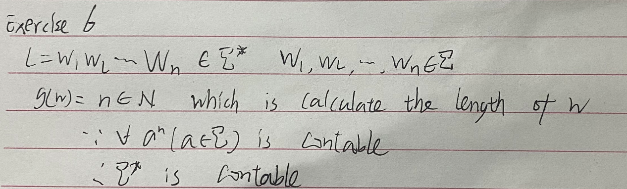 Exercise 6
L = w₁w₂⋯wₙ ∈ Σ* w₁, w₂, ⋯, wₙ ∈ Σ
g(w) = n ∈ N which is calculate the length of w
∵ ∀ aⁿ (a∈Σ) is contable
∴ Σ* is contable